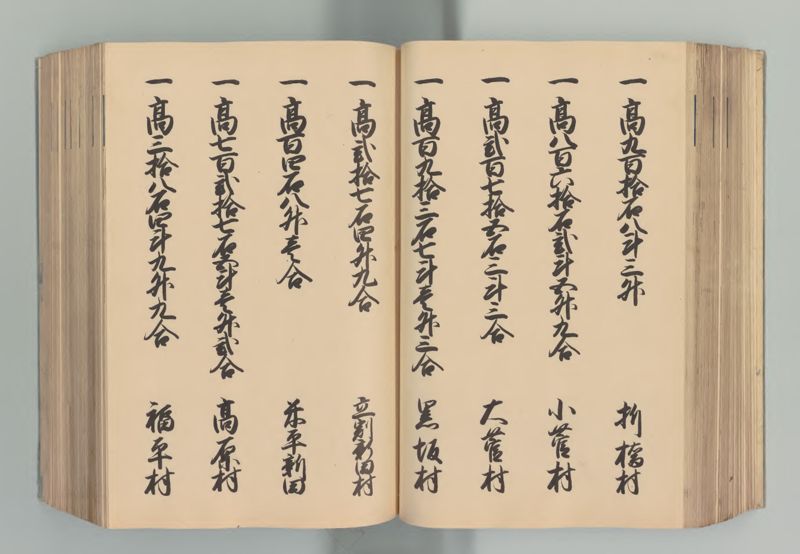 一高九百拾石八斗三升 折橋村
一高八百六拾石弐斗五升九合 小菅村
一高弐百七拾五石三斗三合 大菅村
一高百九拾三石七斗壱升三合 黒坂村
一高弐拾七石四升九合 立割新田村
一高百四石八升壱合 平新田
一高七百弐拾七石斗壱升弐合 高原村
一高三拾八石四斗九升九合 福平村